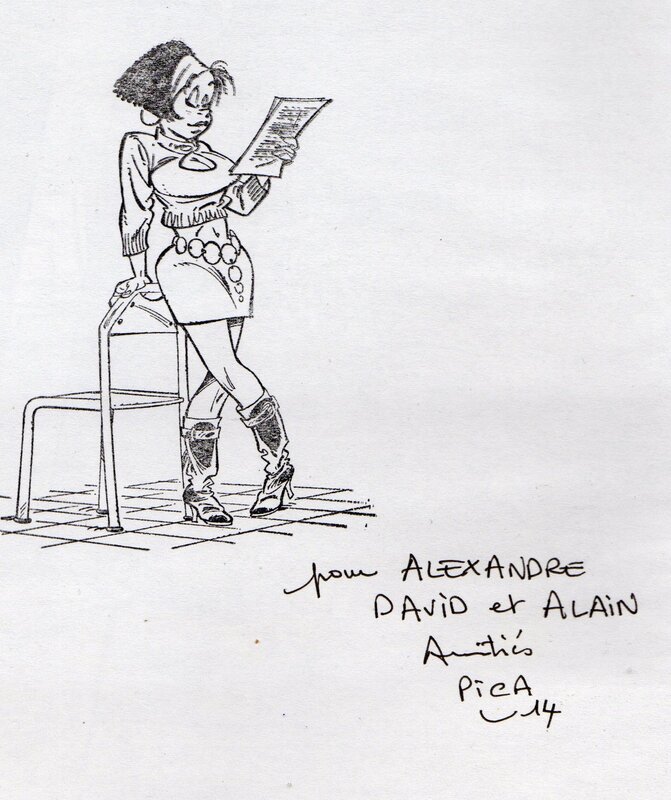 pour ALEXANDRE
DAVID et ALAIN
Amitiés
PICA
14